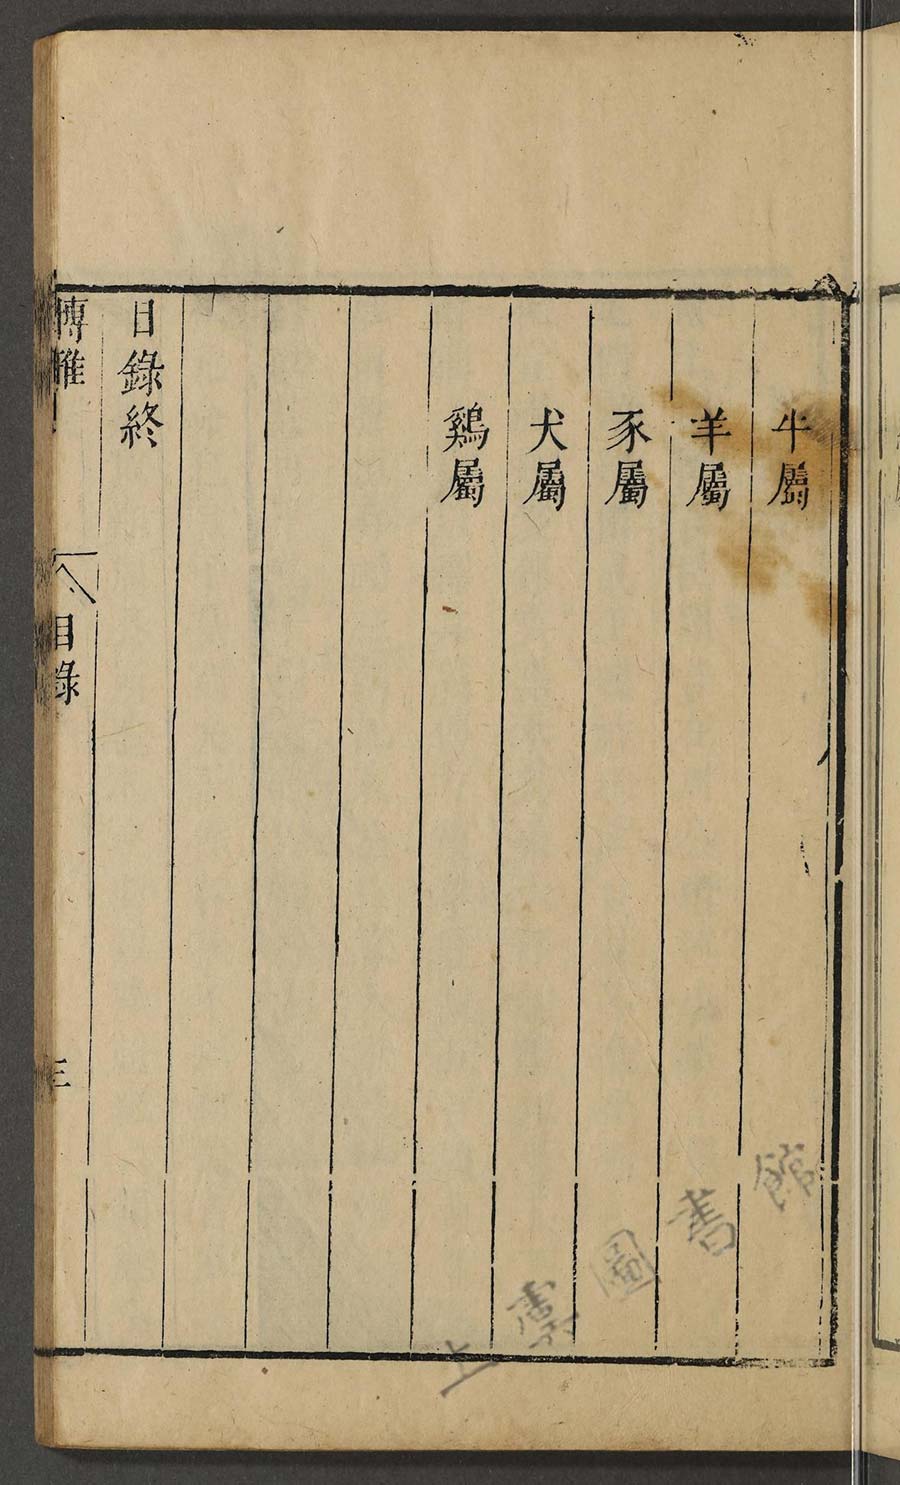 牛屬
羊屬
豕屬
犬屬
鷄屬
目錄終
博雅
目錄
三
上虞圖書館